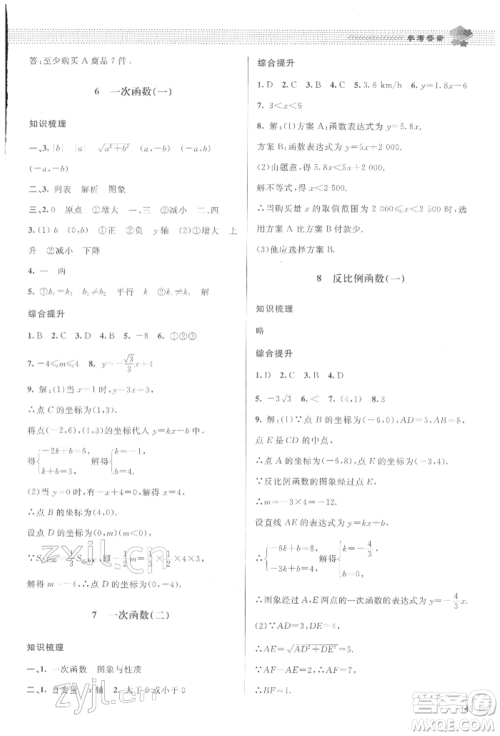 参考答案
答:至少购买 A 商品 7 件.
6 一次函数(一)
知识梳理
一、3. |b| |a| √(a²+b²) (a,-b) (-a,b)
(-a,-b)
二、3. 列表 解析 图象
三、2. 0 原点 ①增大 三 ②减小 二、四
3. (1)b (0,b) y 轴 (2)①增大 上
升 ②减小 下降
4. 一 两
5. ①k₁=k₂ b₁≠b₂ ②k₁≠k₂
综合提升
1. B 2. C 3. D 4. B 5. -8 6. ①③
7. -4≤m≤4
9. 解:(1)当 x=1 时,y=3x=3,
∴点 C 的坐标为(1,3).
将点(-2,6),(1,3)代入 y=kx+b,
得{-2k+b=6, k+b=3, 解得{k=-1, b=4.
(2)当 y=0 时,有-x+4=0,解得 x=4,
∴点 B 的坐标为(4,0).
设点 D 的坐标为(0,m)
解得 m=-4,∴点 D 的坐标为(0,-4).
7 一次函数(二)
知识梳理
一、1. 一次函数 图象与性质
综合提升
1. D 2. C 3. A 4. C 5. 3.6 km/h 6. y=-x
7. 3<x<6
8. 解:(1)方案 A:函数表达式为 y=5.8x.
方案 B:函数表达式为 y=5x+2 000.
(2)由题意,得 5.8x<5x+2 000.
解不等式,得 x<2 500.
∴当购买量 x 的取值范围为 2 000≤x<2 500 时,选用
方案 A 比方案 B 付款少.
(3)他应选择方案 B.
8 反比例函数(一)
知识梳理
略
综合提升
1. D 2. C 3. B 4. D
5. -3√3 6. < 7. (4,1) 8. 8
9. 解:(1)∵点 B 坐标为(-6,0),AD=3,AB=8,
E 为 CD 的中点,
∴点 A 的坐标为(-6,8),点 E 的坐标为(-3,4).
∵反比例函数的图象经过点 E,
∴m=-3×4=-12.
设直线 AE 的表达式为 y=kx+b,
∴{-6k+b=8, -3k+b=4, 解得{k=-4/3, b=0.
∴图象经过 A,E 两点的一次函数的表达式为 y=-4/3 x.
(2)∵AD=3,DE=4,
∴AE=√(AD²+DE²)=5.
∵AF-AE=2,∴AF=7,
∴BF=1.
zyjl.cn